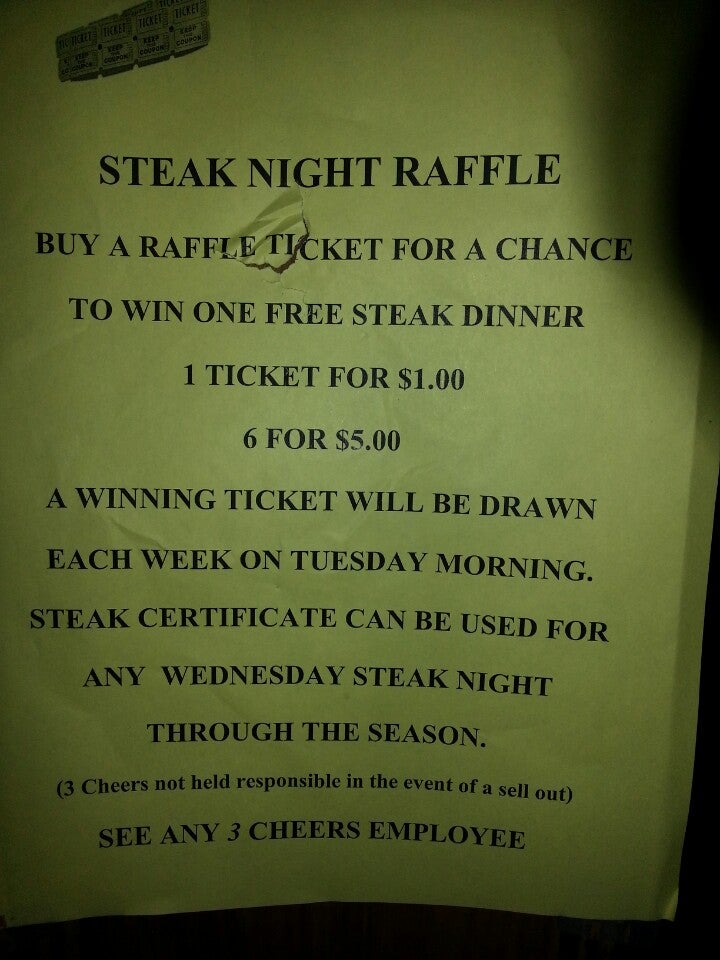 TICKET TICKET TICKET TICKET
KEEP THIS COUPON KEEP THIS COUPON KEEP THIS COUPON
STEAK NIGHT RAFFLE
BUY A RAFFLE TICKET FOR A CHANCE
TO WIN ONE FREE STEAK DINNER
1 TICKET FOR $1.00
6 FOR $5.00
A WINNING TICKET WILL BE DRAWN
EACH WEEK ON TUESDAY MORNING.
STEAK CERTIFICATE CAN BE USED FOR
ANY WEDNESDAY STEAK NIGHT
THROUGH THE SEASON.
(3 Cheers not held responsible in the event of a sell out)
SEE ANY 3 CHEERS EMPLOYEE